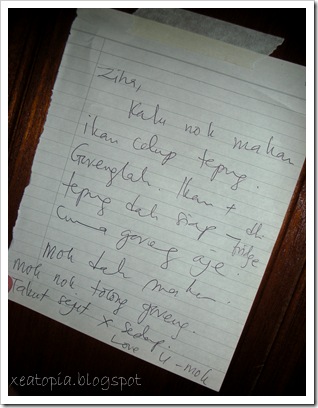 Ziha,
Kalu nok makan
ikan celup tepung.
Gorenglah. Ikan + 
tepung dah siap dlm fridge
Cuma goreng aje.
Mok dah makan.
Mok nok tolong goreng.
Takut sejut x sedap.
Love U - Mok
xeatopia.blogspot